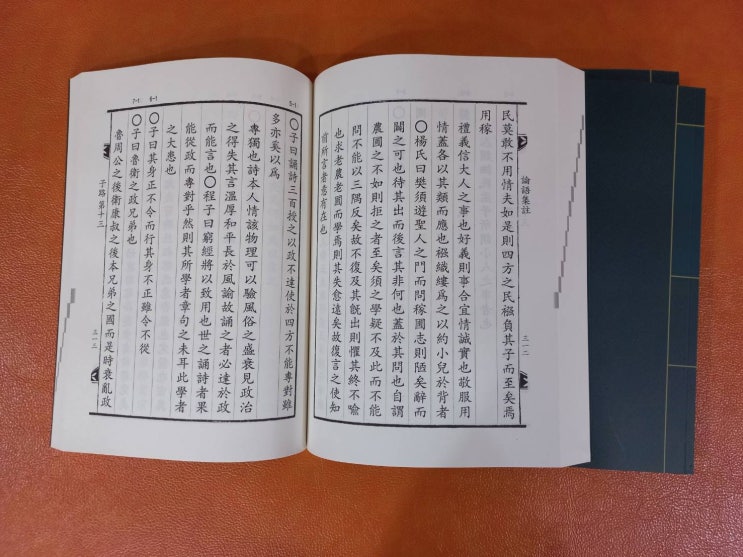 論語集註
三一二
民莫敢不用情夫如是則四方之民襁負其子而至矣焉
用稼
禮義信大人之事也好義則事合宜情誠實也敬服用
情蓋各以其類而應也襁織縷爲之以約小兒於背者
〇楊氏曰樊須遊聖人之門而問稼圃志則陋矣辭而
闢之可也待其出而後言其非何也蓋於其問也自謂
農圃之不如則拒之者至矣須之學疑不及此而不能
問不能以三隅反矣故不復及其旣出則懼其終不喩
也求老農老圃而學焉則其失愈遠矣故復言之使知
前所言者意有在也
5-1
〇子曰誦詩三百授之以政不達使於四方不能專對雖
多亦奚以爲
專獨也詩本人情該物理可以驗風俗之盛衰見政治
之得失其言溫厚和平長於風諭故誦之者必達於政
而能言也〇程子曰窮經將以致用也世之誦詩者果
能從政而專對乎然則其所學者章句之末耳此學者
之大患也
6-1
〇子曰其身正不令而行其身不正雖令不從
7-1
〇子曰魯衛之政兄弟也
魯周公之後衛康叔之後本兄弟之國而是時衰亂政
子路 第十三
三一三